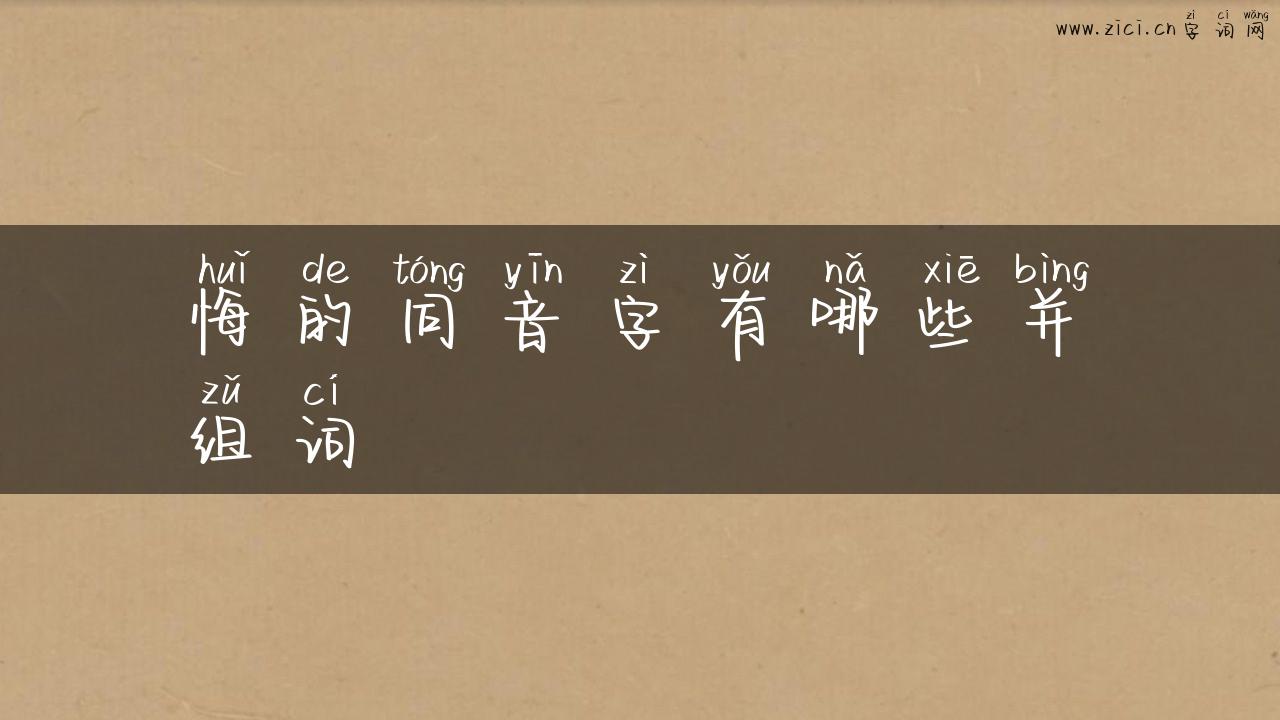 zì cí wǎng
www.zici.cn 字 词 网
huǐ de tóng yīn zì yǒu nǎ xiē bìng
悔 的 同 音 字 有 哪 些 并
zǔ cí
组 词